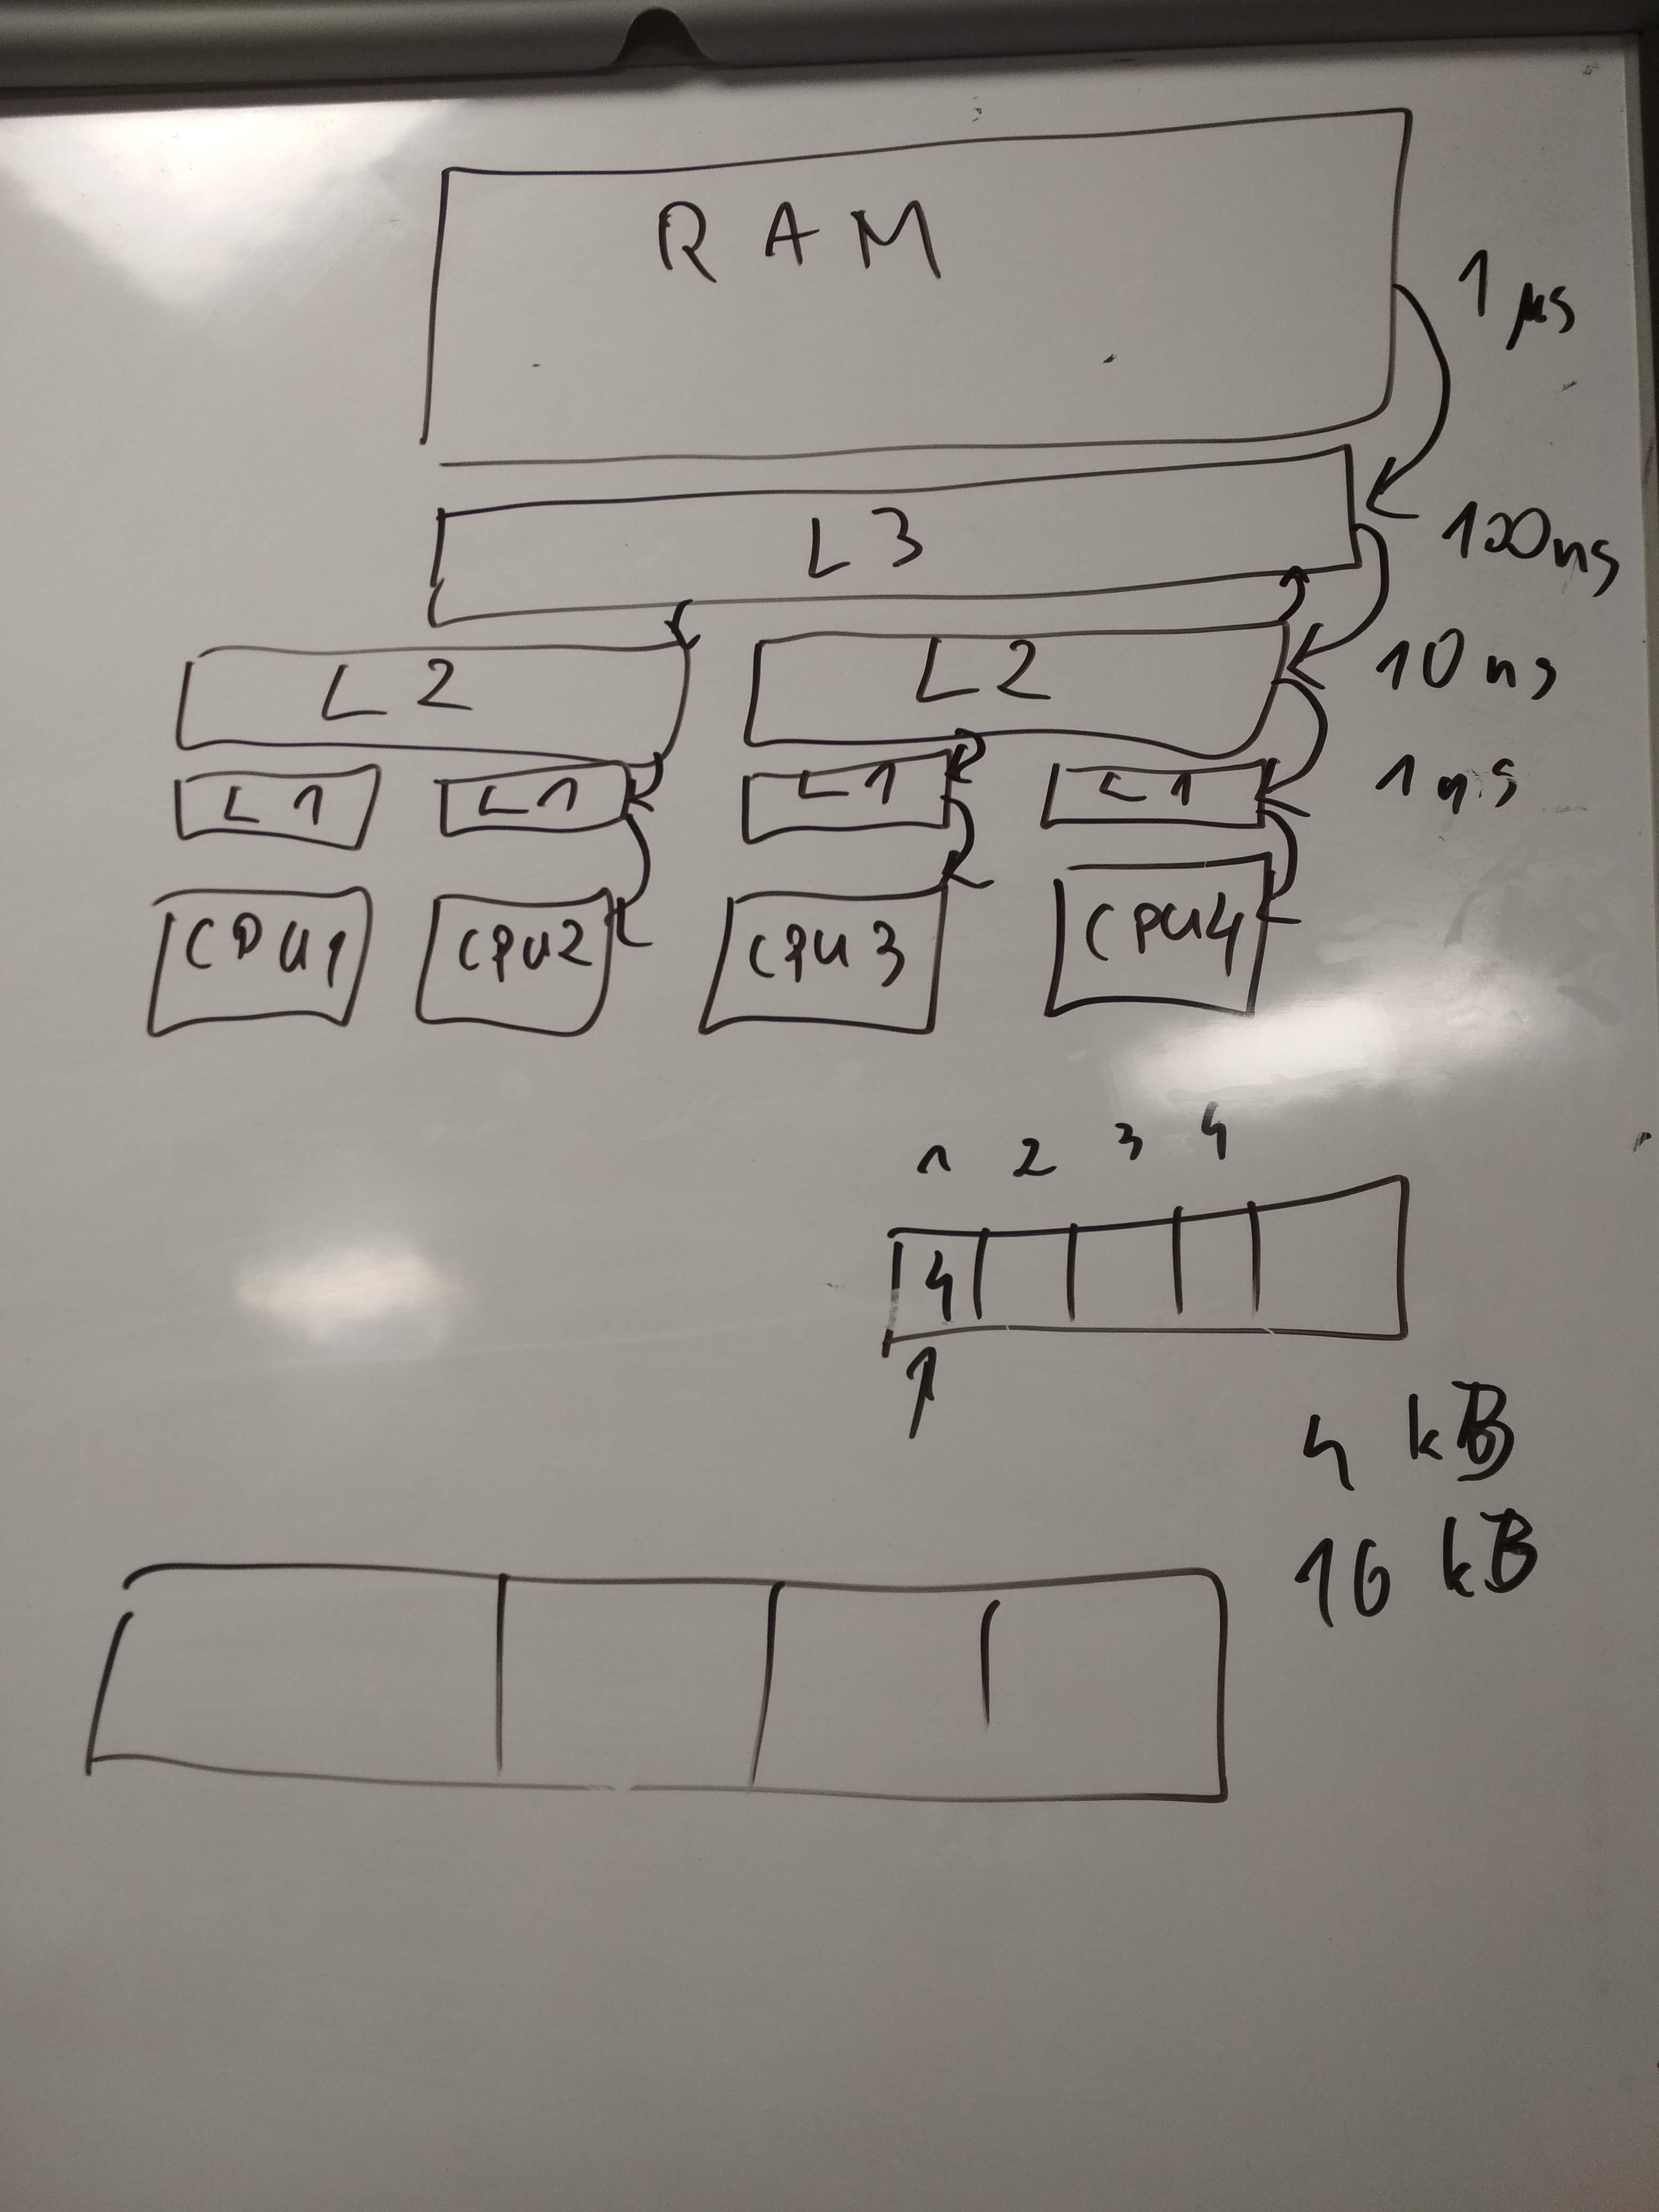 RAM
1 µs
L3
100ns
L2 L2
10 ns
L1 L1 L1 L1
1 ns
CPU1 CPU2 CPU3 CPU4
1 2 3 4
4
1
4 kB
16 kB